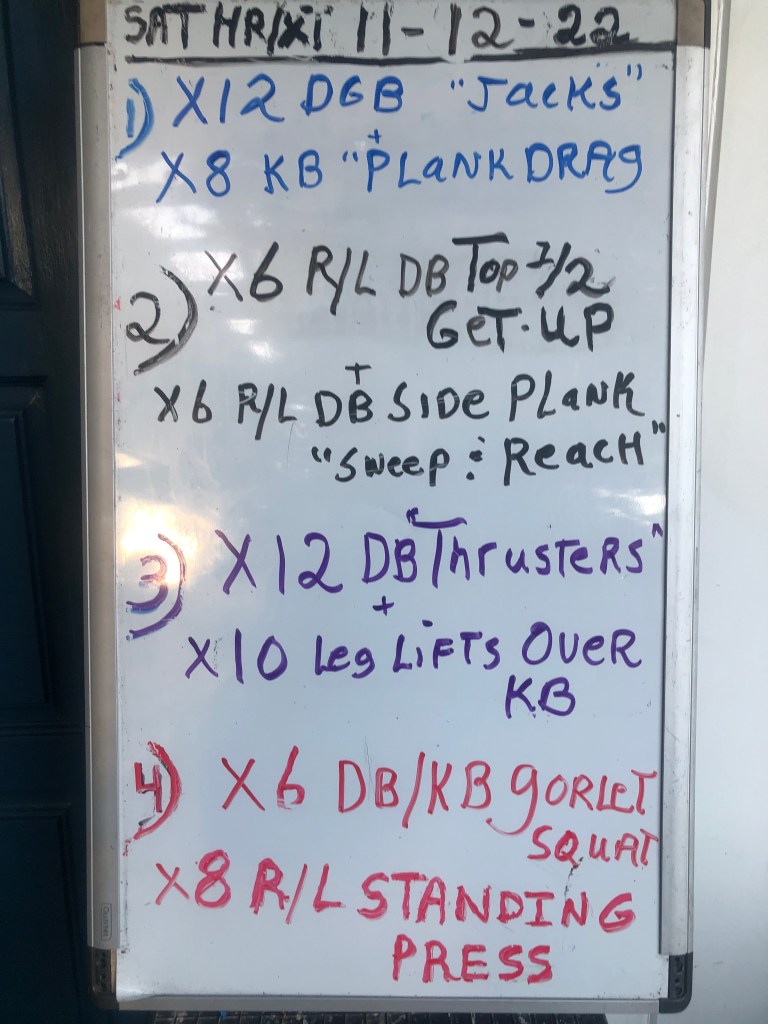 SAT HR/Xi 11-12-22
1) X12 DGB "Jacks"
+
X8 KB "PLANK DRAG
2) X6 R/L DB Top 1/2
GeT-UP
+
X6 R/L DB SIDe PLANK
"Sweep & ReacH"
3) X12 DB "ThrusTeRS"
+
X10 Leg LiFTs OveR
KB
4) X6 DB/KB gORLeT
SQUAT
X8 R/L STANDING
PRESS